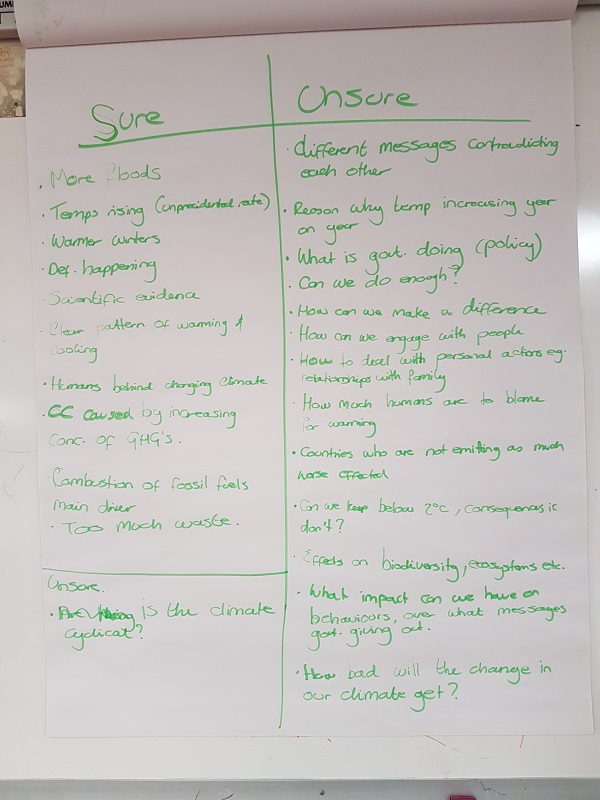 Sure
· More floods
· Temps rising (unprecidented rate)
· Warmer winters
· Def. happening
· Scientific evidence
· Clear pattern of warming &
cooling
· Humans behind changing climate
· CC caused by increasing
conc. of GHG's.
· Combustion of fossil fuels
main driver
· Too much waste.
Unsure.
· is the climate
cyclical?
Unsure
· different messages contradicting
each other
· Reason why temp increasing year
on year
· What is govt. doing (policy)
· Can we do enough?
· How can we make a difference
· How can we engage with people
· How to deal with personal actors eg.
relationships with family
· How much humans are to blame
for warming
· Countries who are not emitting as much
worse effected
· Can we keep below 2°C, consequences if
don't?
· Effects on biodiversity, ecosystems etc.
· What impact can we have on
behaviours, over what messages
govt. giving out.
· How bad will the change in
our climate get?